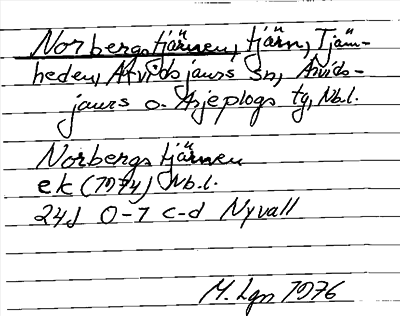 Norbergstjärnen, tjärn, Tjäm-
heden, Arvidsjaurs sn, Arvids-
jaurs o. Arjeplogs tg, Nb.l.
Norbergstjärnen
ek (1974) Nb.l.
24J 0-1 c-d Nyvall
M. Lgn 1976